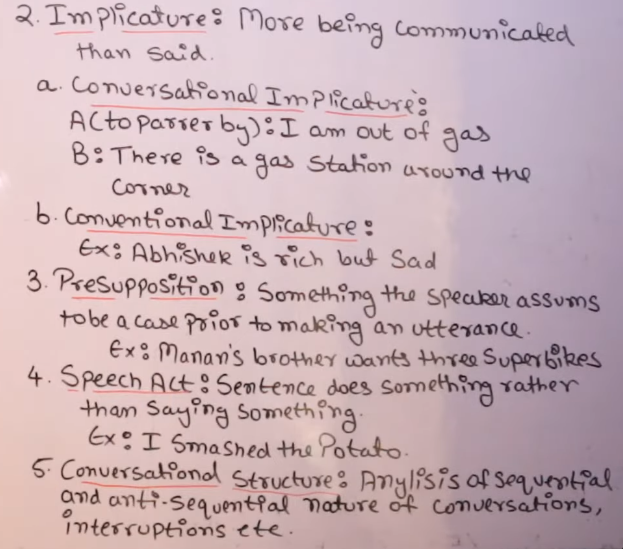 2. Implicature: More being communicated
than said.
a. Conversational Implicature:
A (to passer by): I am out of gas
B: There is a gas station around the
corner
b. Conventional Implicature:
Ex: Abhishek is rich but Sad
3. Presupposition: Something the speaker assums
to be a case prior to making an utterance.
Ex: Manan's brother wants three Superbikes
4. Speech Act: Sentence does something rather
than saying something.
Ex: I Smashed the Potato.
5. Conversational Structure: Anylisis of sequential
and anti-sequential nature of conversations,
interruptions etc.